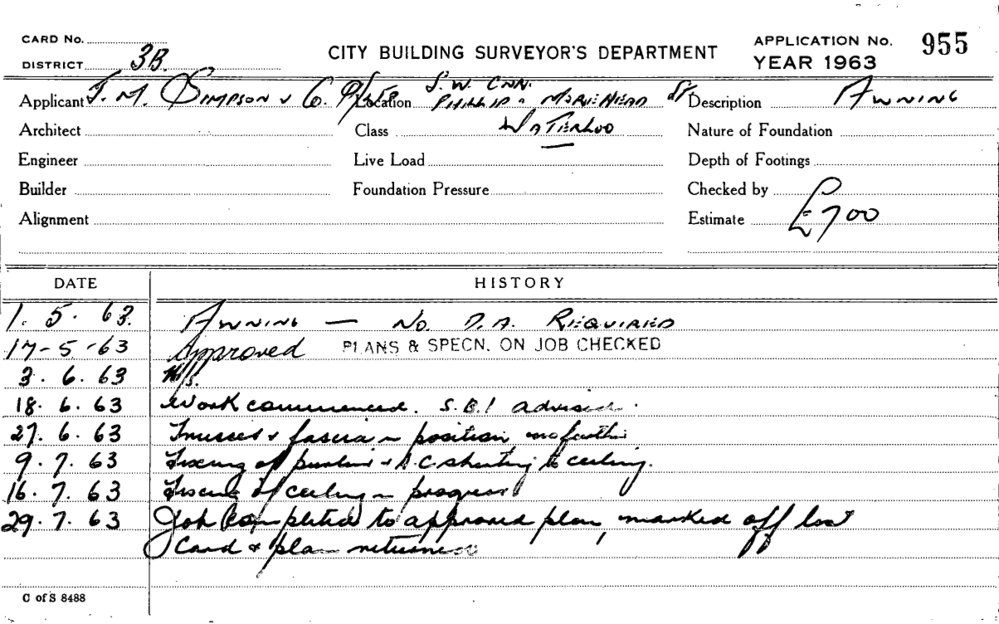 CARD No.
DISTRICT 3B.
CITY BUILDING SURVEYOR'S DEPARTMENT
APPLICATION No. 955
YEAR 1963
Applicant J. M. Simpson & Co. P/L
Location S.W. Cnr. Phillip & Morehead St
Description Awning
Architect
Class Waterloo
Nature of Foundation
Engineer
Live Load
Depth of Footings
Builder
Foundation Pressure
Checked by
Alignment
Estimate £700
DATE HISTORY
1. 5. 63. Awning — No D.A. Required
17-5-63 Approved PLANS & SPECN. ON JOB CHECKED
3. 6. 63 N/S.
18. 6. 63 Work commenced. S.B.I advised.
27. 6. 63 Trusses & fascia in position no further
9. 7. 63 Fixing of purlins & A.C. sheeting to ceiling.
16. 7. 63 Fixing of ceiling in progress
29. 7. 63 Job completed to approved plan, marked off
Card & plan returned
C of S 8488